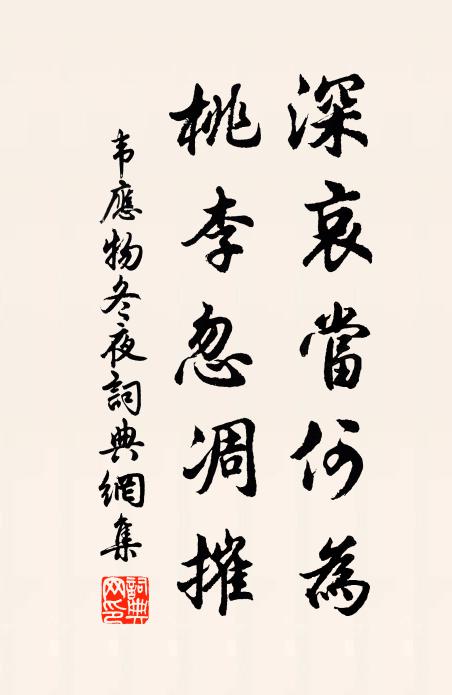 深哀當何為
桃李忽凋摧
韦應物冬夜詞典網集
詞典網印